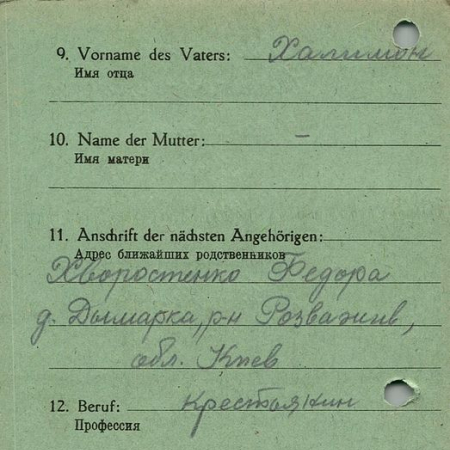 9. Vorname des Vaters: Халимон
Имя отца
10. Name der Mutter: –
Имя матери
11. Anschrift der nächsten Angehörigen:
Адрес ближайших родственников
Хворостенко Федора
д. Дымарка, р-н Розважив,
обл. Киев
12. Beruf: крестьянин
Профессия